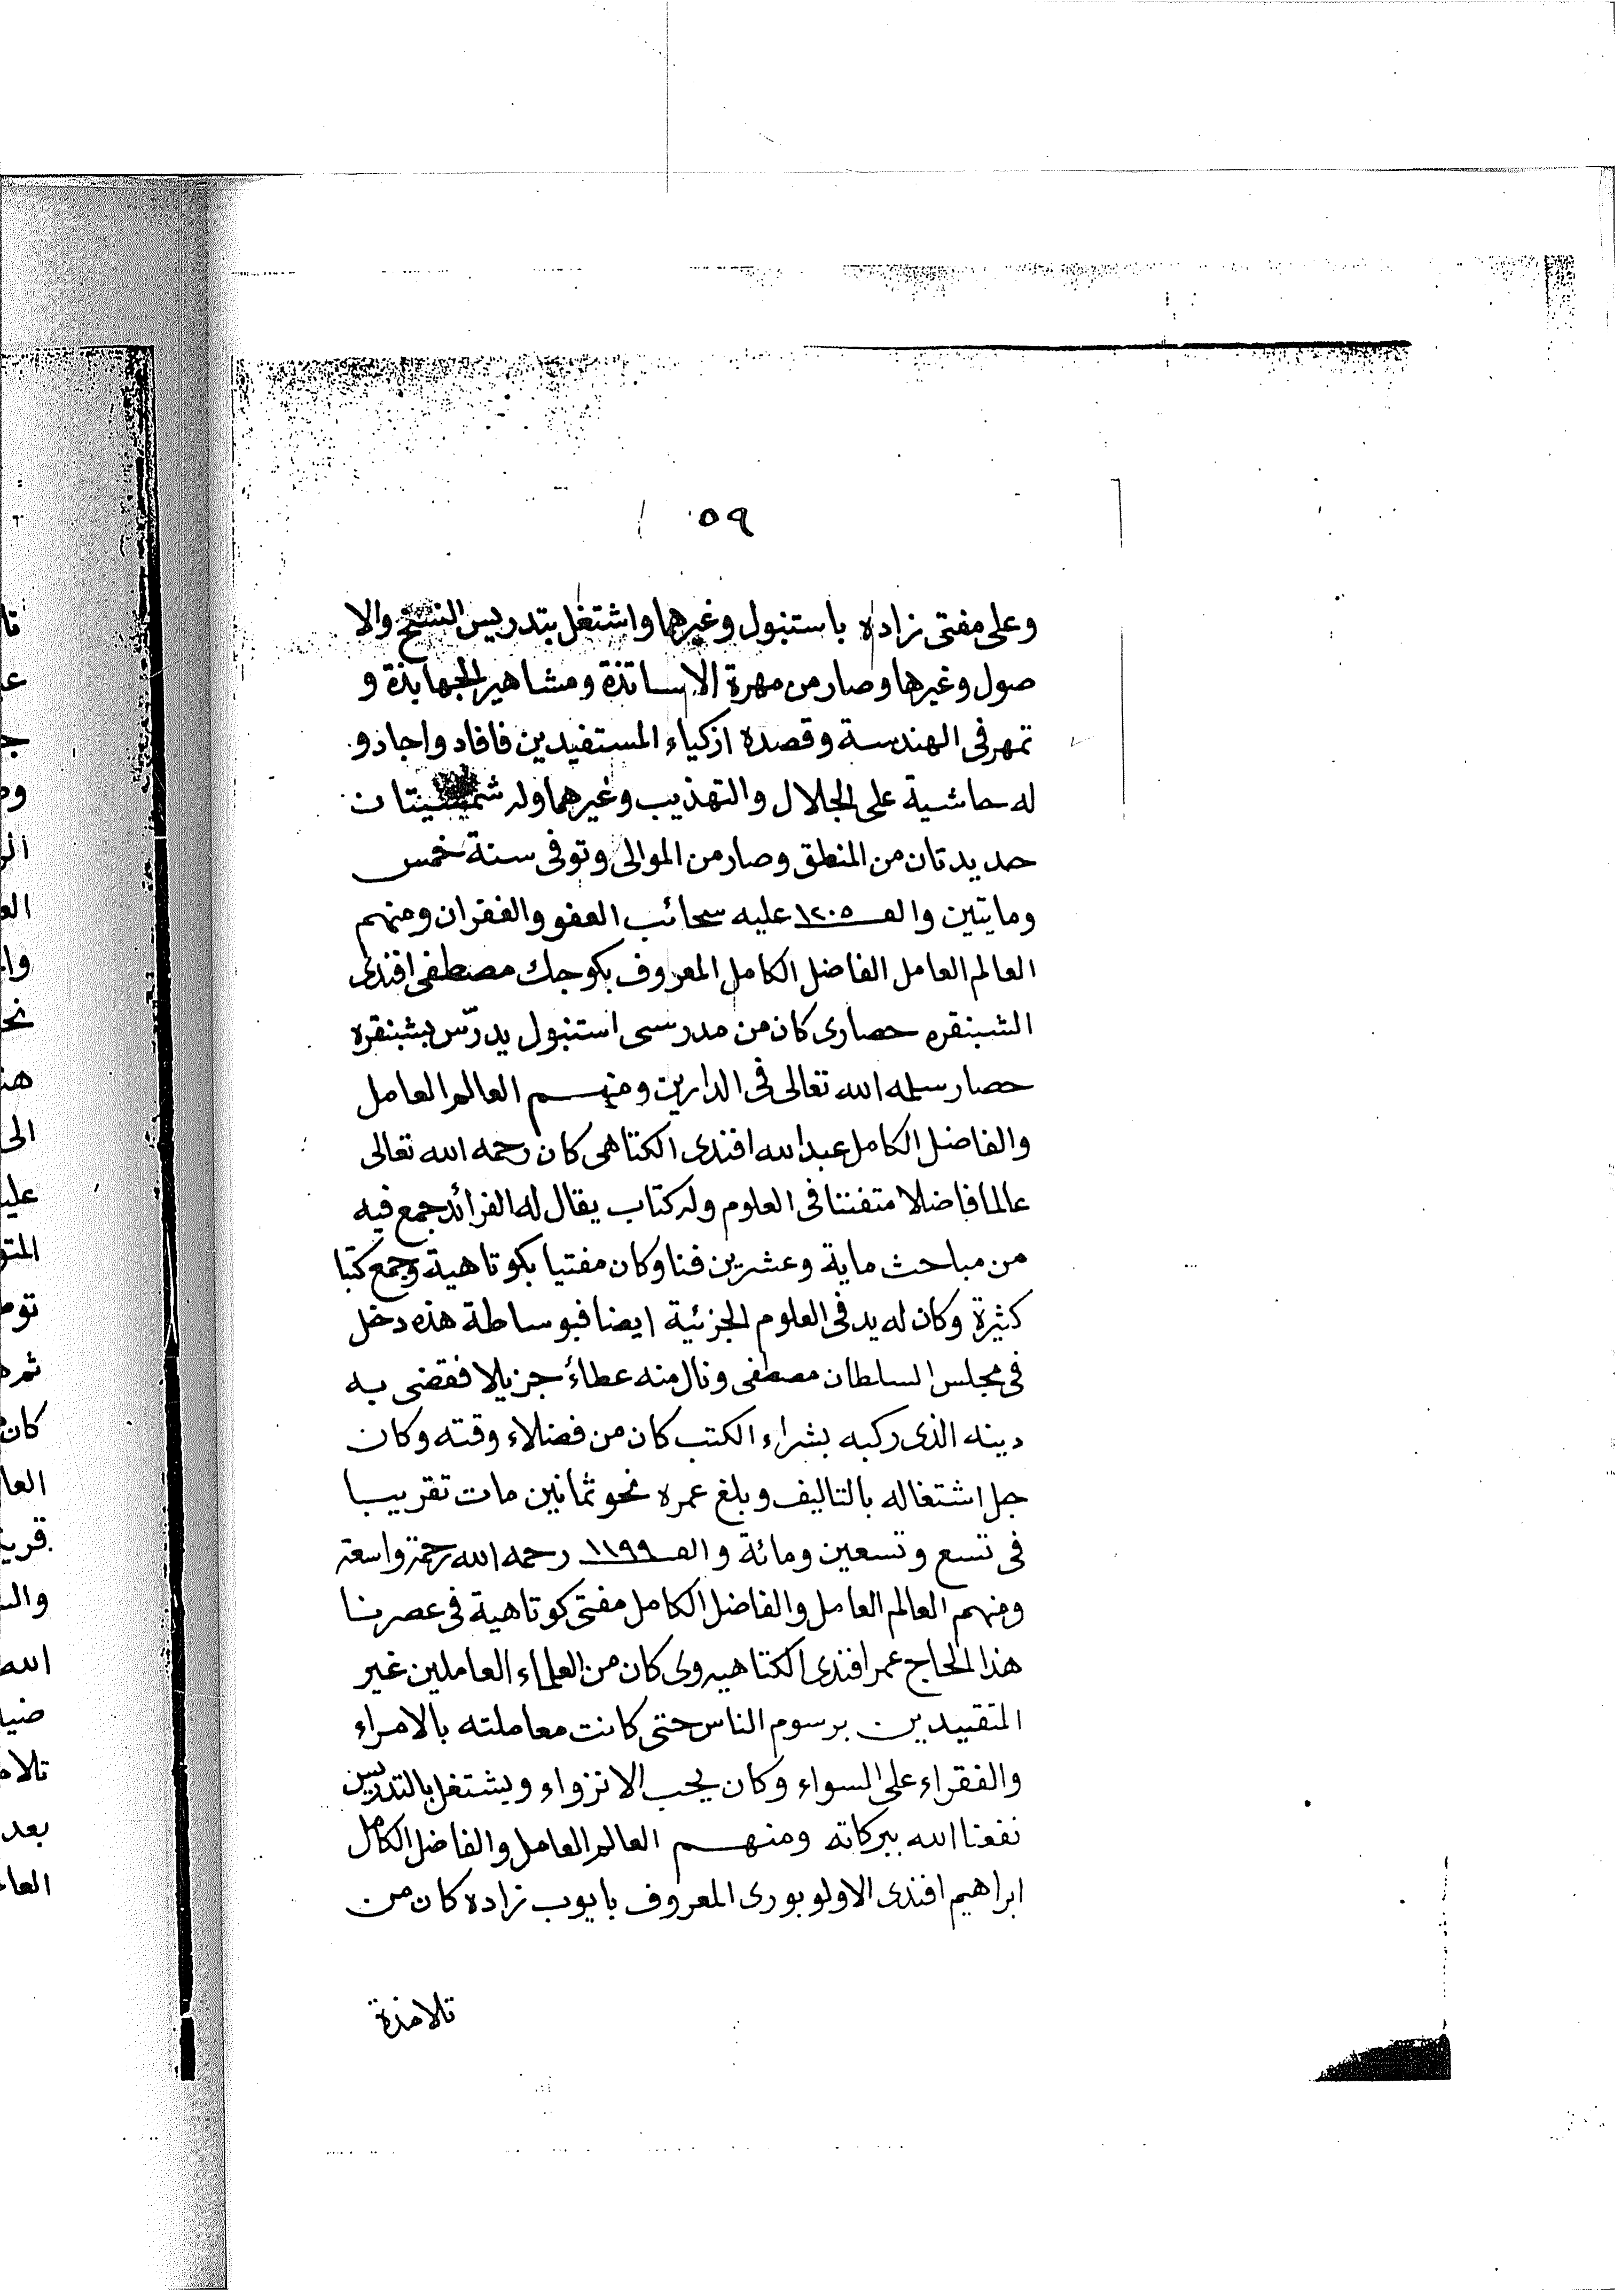 ٥٩
وعلى مفتى زاده باستنبول وغيرهما واشتغل بتدريس النسخ والا
صول وغيرها وصار من مهرة الاساتذة ومشاهير الجهابذة و
تمهر فى الهندسة وقصده ازكياء المستفيدين فافاد واجاد و
له حاشية على الجلال والتهذيب وغيرهما وله
حديدتان من المنطق وصار من الموالى وتوفى سنة خمس
ومايتين والف ١٢٠٥ عليه سحائب العفو والغفران ومنهم
العالم العامل الفاضل الكامل المعروف بكوجك مصطفى افندى
الشبنقره حصارى كان من مدرسى استنبول يدرّس بشبنقره
حصار سلمه الله تعالى فى الدارين ومنهم العالم العامل
والفاضل الكامل عبدالله افندى الكتاهى كان رحمه الله تعالى
عالما فاضلا متفننا فى العلوم وله كتاب يقال له الفرائد جمع فيه
من مباحث ماية وعشرين فنا وكان مفتيا بكوتاهية وجمع كتبا
كثيرة وكان له يد فى العلوم الجزئية ايضا فبوساطة هذه دخل
فى مجلس السلطان مصطفى ونال منه عطاءً جزيلا فقضى به
دينه الذى ركبه بشراء الكتب كان من فضلاء وقته وكان
جل اشتغاله بالتاليف وبلغ عمره نحو ثمانين مات تقريبا
فى تسع وتسعين ومائة والف ١١٩٩ رحمه الله رحمة واسعة
ومنهم العالم العامل والفاضل الكامل مفتى كوتاهية فى عصرنا
هذا الحاج عمر افندى الكتاهيه وى كان من العلماء العاملين غير
المتقيدين برسوم الناس حتى كانت معاملته بالامراء
والفقراء على السواء وكان يحب الانزواء ويشتغل بالتدريس
نفعنا الله ببركاته ومنهم العالم العامل والفاضل الكامل
ابراهيم افندى الاولوبورى المعروف بايوب زاده كان من
تلامذة